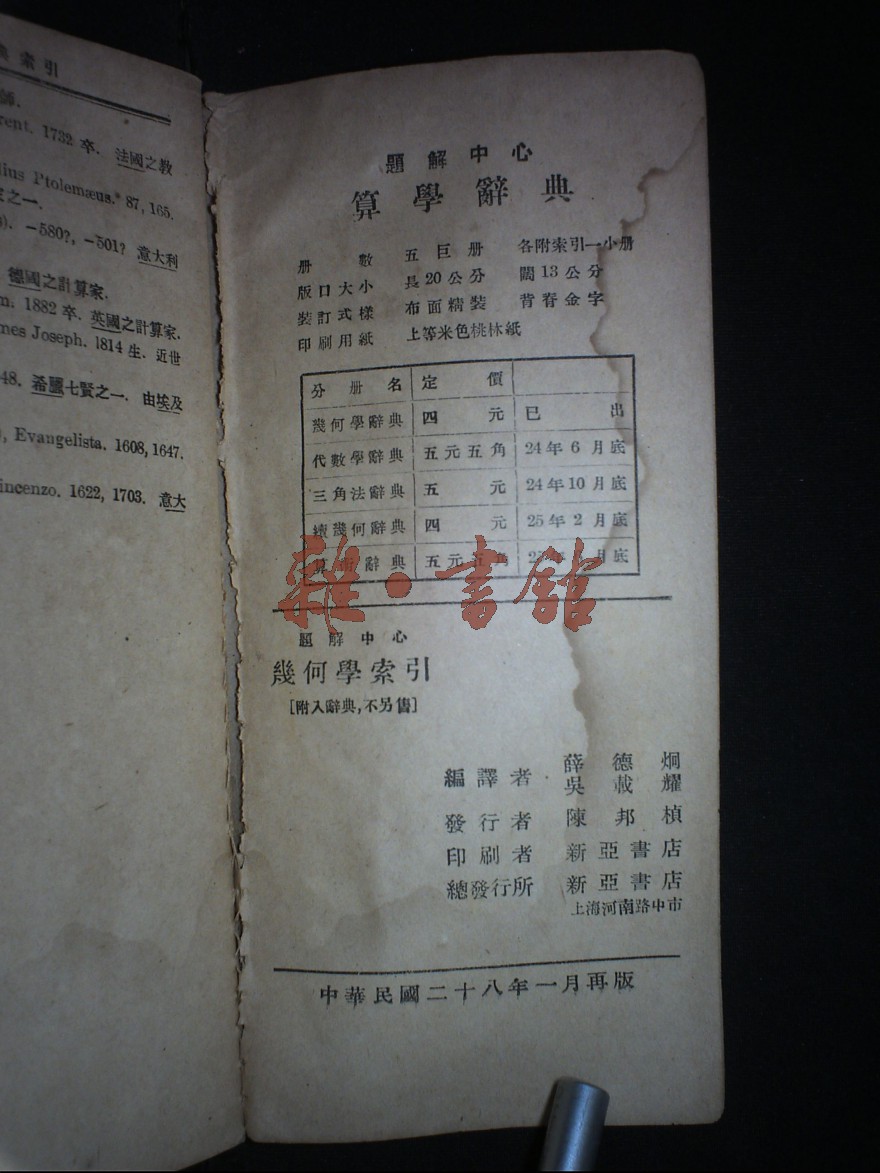 索引
師.
rent. 1732 卒. 法國之教
lius Ptolemæus. 87, 165.
家之一.
). −580?, −501? 意大利
德國之計算家.
m. 1882 卒. 英國之計算家.
mes Joseph. 1814 生. 近世
48. 希臘七賢之一. 由埃及
), Evangelista. 1608, 1647.
incenzo. 1622, 1703. 意大
題解中心
算學辭典
册數 五巨册 各附索引一小册
版口大小 長20公分 闊13公分
裝訂式樣 布面精裝 背脊金字
印刷用紙 上等米色桃林紙
分册名 定價
幾何學辭典 四元 已出
代數學辭典 五元五角 24年6月底
三角法辭典 五元 24年10月底
續幾何辭典 四元 25年2月底
算術辭典 五元五角 25年 月底
雜·書館
題解中心
幾何學索引
[附入辭典,不另售]
編譯者 薛德炯
吳載耀
發行者 陳邦楨
印刷者 新亞書店
總發行所 新亞書店
上海河南路中市
中華民國二十八年一月再版